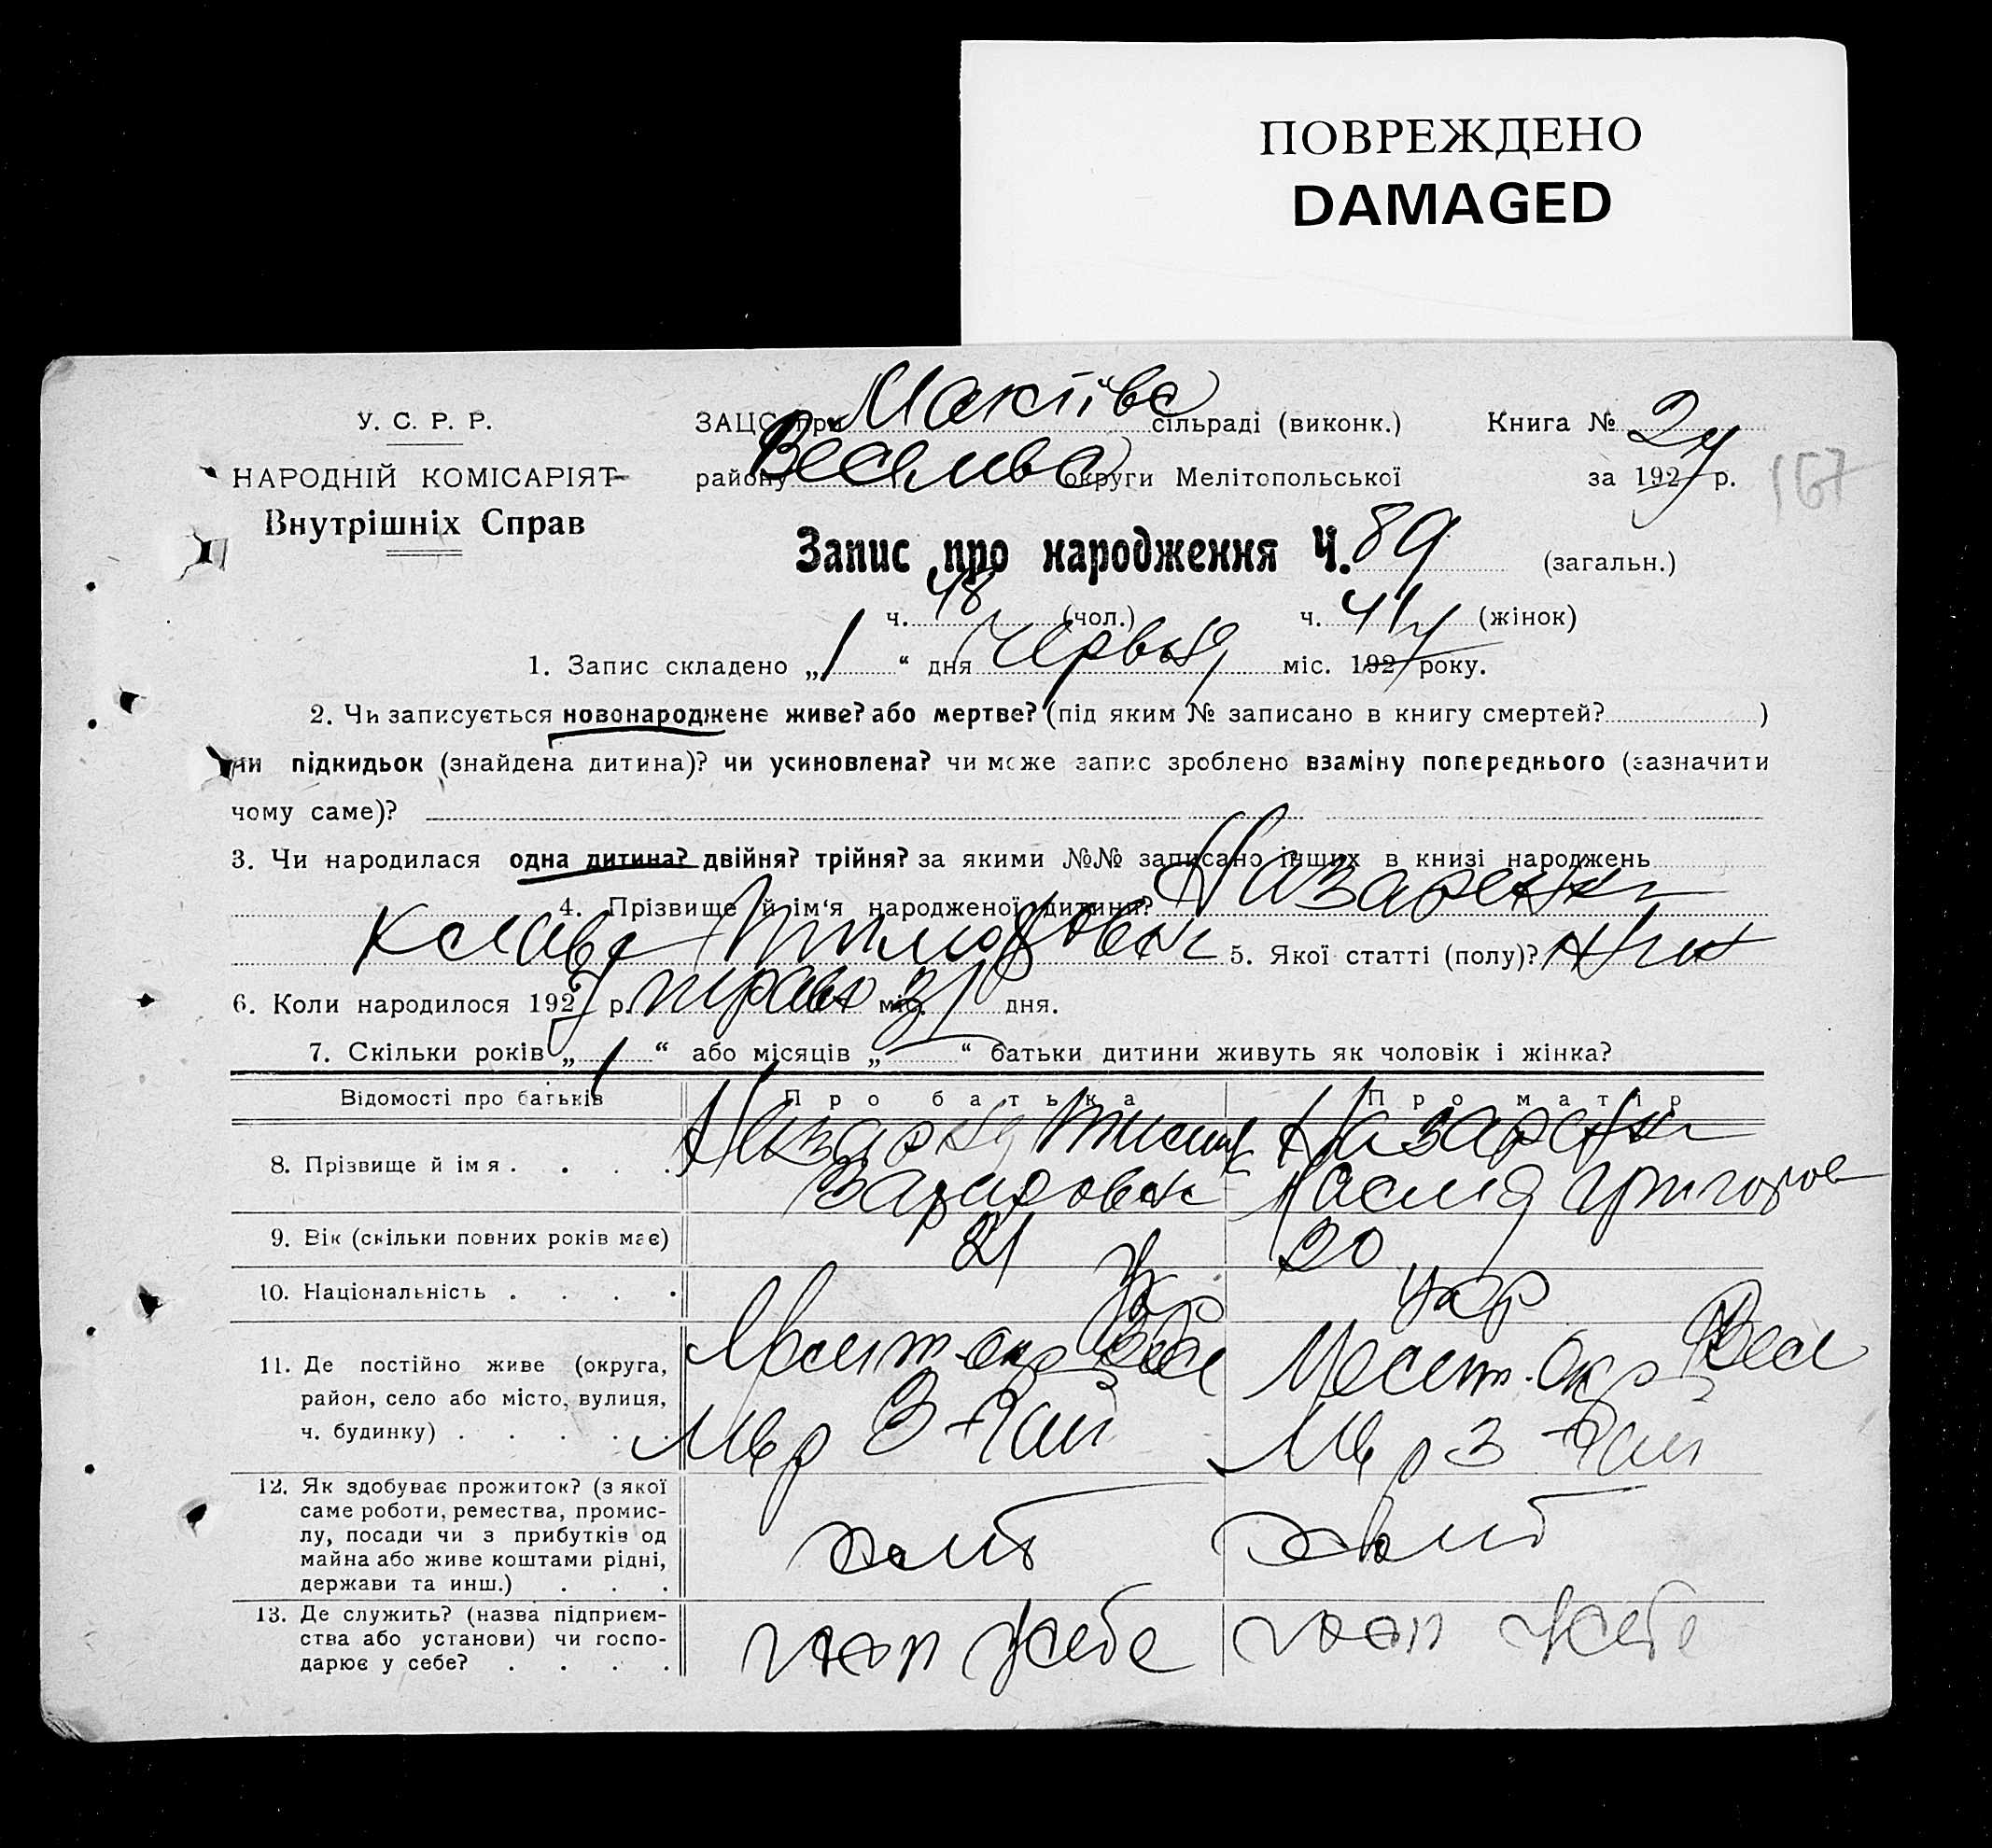 ПОВРЕЖДЕНО
DAMAGED
У. С. Р. Р.
НАРОДНІЙ КОМІСАРІЯТ
Внутрішніх Справ
ЗАЦС при сільраді (виконк.)
району округи Мелітопольської
Книга № 2
за 1927 р.
167
Запис про народження Ч. 89 (загальн.)
ч. 48 (чол.) ч. 41 (жінок)
1. Запис складено „1“ дня Червня міс. 1927 року.
2. Чи записується новонароджене живе? або мертве? (під яким № записано в книгу смертей? )
чи підкидьок (знайдена дитина)? чи усиновлена? чи може запис зроблено взаміну попереднього (зазначити
чому саме)?
3. Чи народилася одна дитина? двійня? трійня? за якими №№ записано інших в книзі народжень
4. Прізвище й ім‘я народженої дитини? Назаренко
5. Якої статті (полу)? жін
6. Коли народилося 1927 р. травн міс. 31 дня.
7. Скільки років „1“ або місяців „—“ батьки дитини живуть як чоловік і жінка?
Відомості про батьків Про батька Про матір
8. Прізвище й імя . . . . Назаренко
Григоров
9. Вік (скільки повних років має) 21 20
10. Національність . . . . Укр Укр
11. Де постійно живе (округа,
район, село або місто, вулиця,
ч. будинку) . . . . .
Мелит. окр Весе
Мелит. Окр Весе
12. Як здобуває прожиток? (з якої
саме роботи, ремества, промис-
лу, посади чи з прибутків од
майна або живе коштами рідні,
держави та инш.) . . .
хліб хліб
13. Де служить? (назва підприєм-
ства або установи) чи госпо-
дарює у себе? . . . .
госп у себе госп у себе